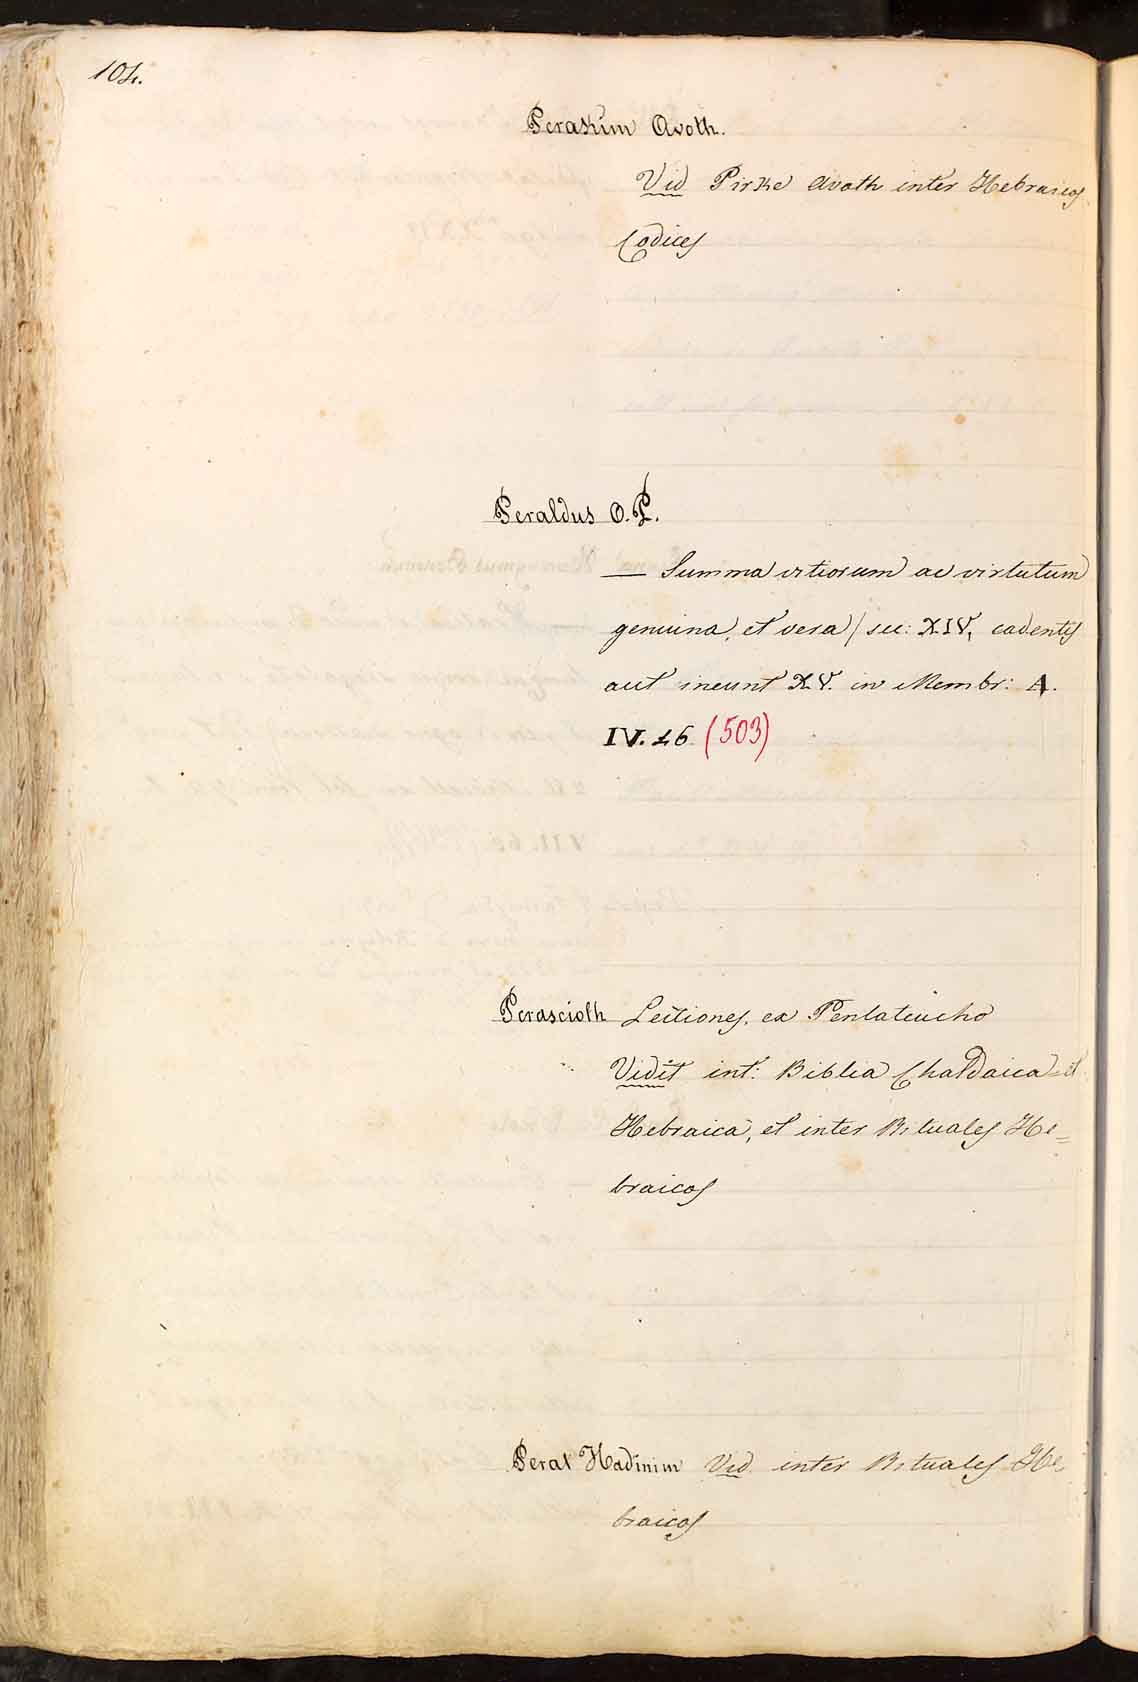 104.
Perakim Avoth.
Vid Pirke Avoth inter Hebraicos
Codices
Peraldus O.P.
— Summa vitiorum ac virtutum
genuina, et vera / sec: XIV, cadentis
aut ineunt XV. in Membr: A.
IV. 16 (503)
Perascioth Lectiones, ex Pentateucho
Vidit int: Biblia Chaldaica et
Hebraica, et inter Rituales He=
braicos
Perat Hadinim Vid inter Rituales He=
braicos